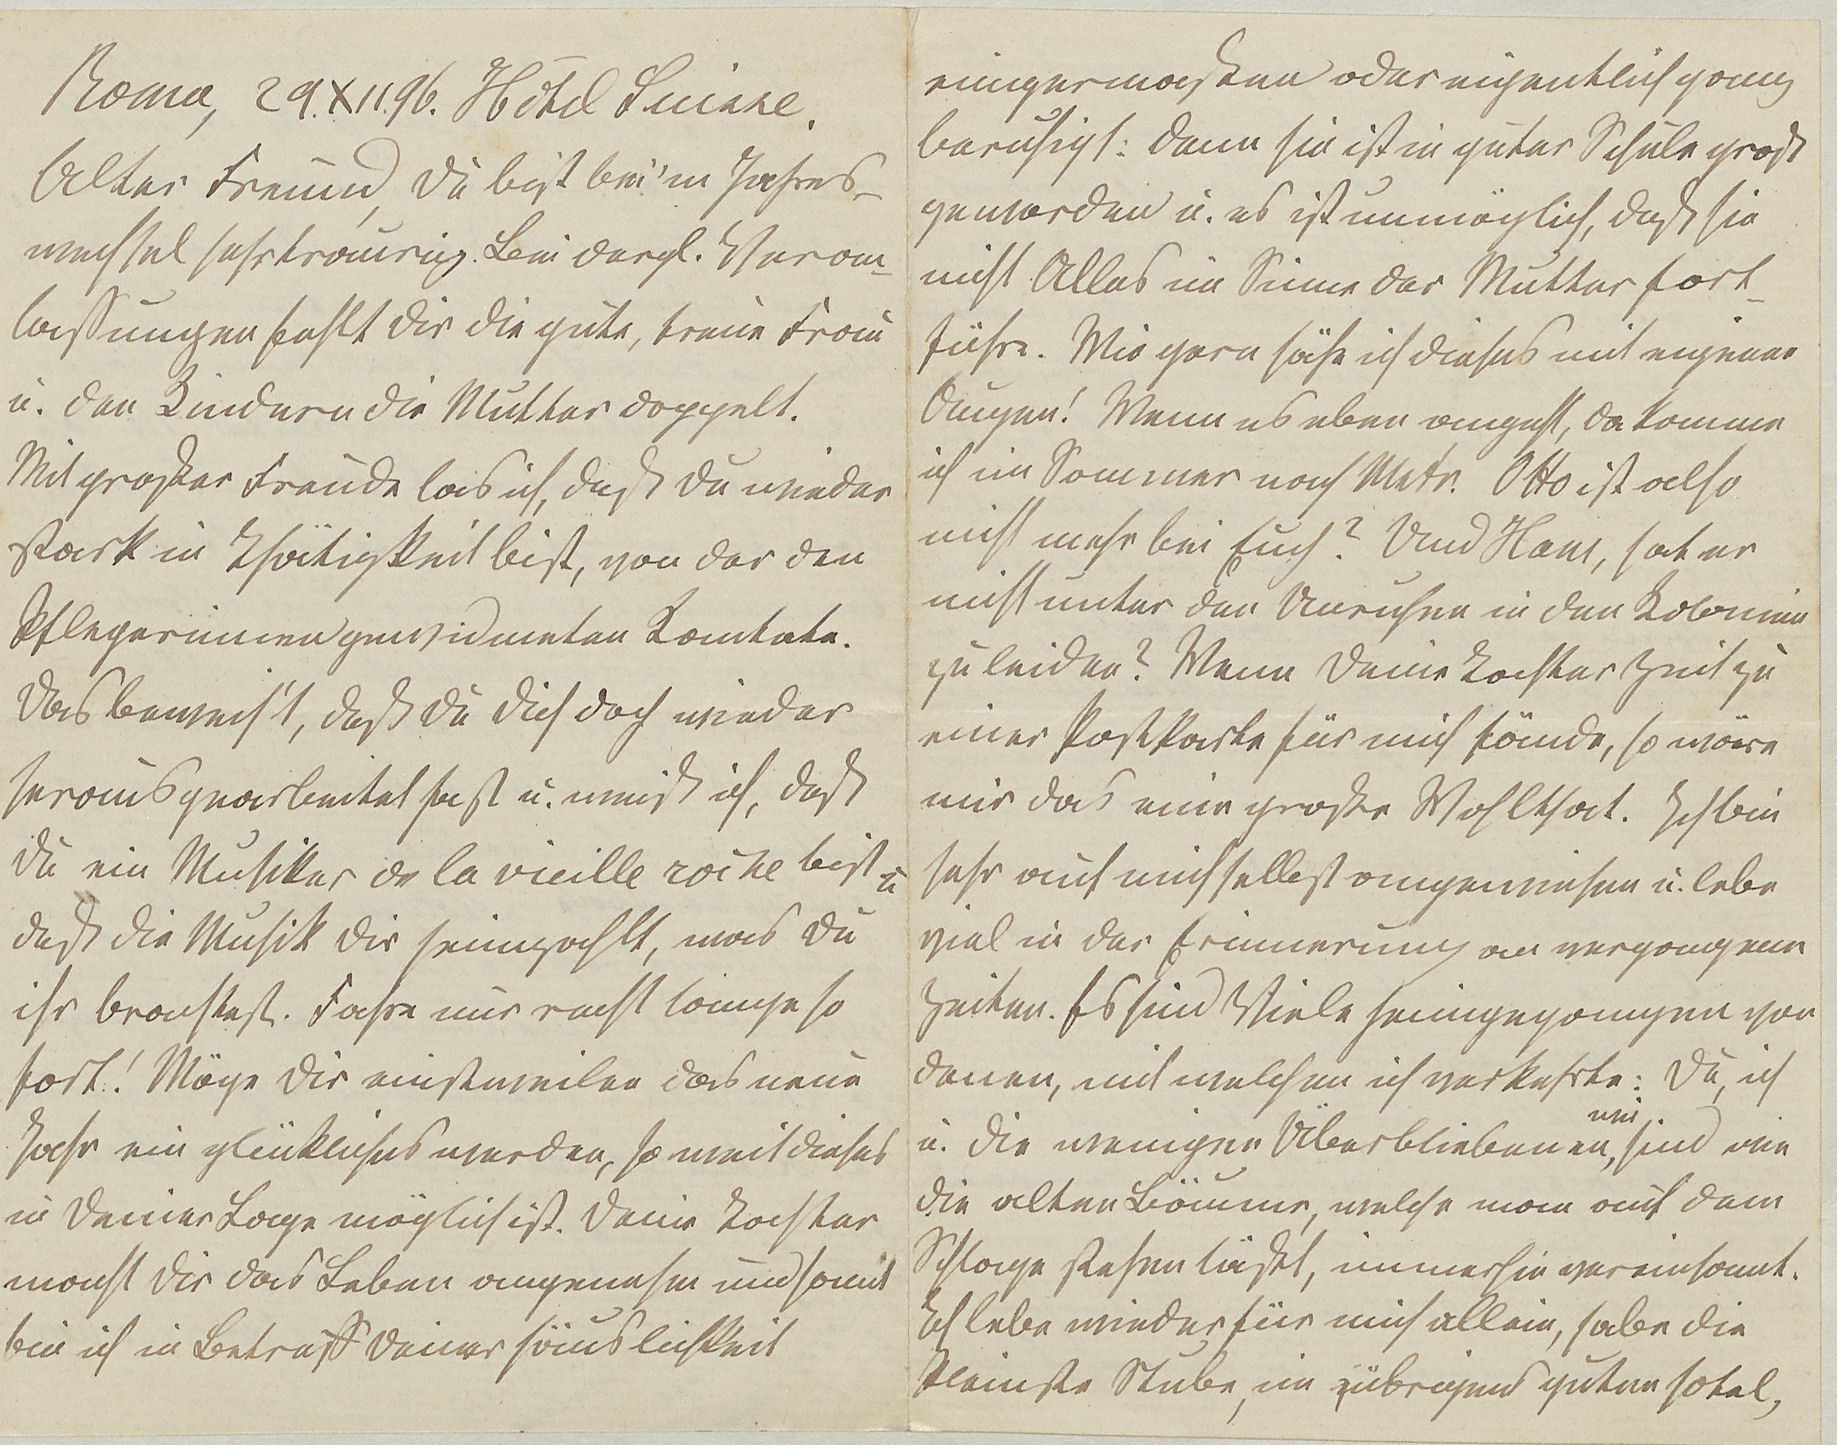 Roma, 29.XII.96. Hôtel Suisse.
Alter Freund, Du bist bei'm Jahres-
wechsel sehr traurig. Bei dergl. Veran-
lassungen fehlt Dir die gute, treue Frau
u. den Kindern die Mutter doppelt.
Mit großer Freude las ich, daß Du wieder
stark in Thätigkeit bist, von der den
Pflegerinnen gewidmeten Kantate.
Das beweis't, daß Du Dich doch wieder
herausgearbeitet hast u. weiß ich, daß
Du ein Musiker de la vieille roche bist u.
daß die Musik Dir heimzahlt, was Du
ihr brachtest. Fahre nur recht lange so
fort! Möge Dir einstweilen das neue
Jahr ein glückliches werden, so weit dieses
in Deiner Lage möglich ist. Deine Tochter
macht Dir das Leben angenehm und somit
bin ich in Betreff Deiner Häuslichkeit
einigermaßen oder eigentlich ganz
beruhigt: denn sie ist in guter Schule groß
geworden u. es ist unmöglich, daß sie
nicht Alles im Sinne der Mutter fort-
führe. Wie gern sähe ich dieses mit eigenen
Augen! Wenn es eben angeht, da komme
ich im Sommer nach Mstr. Otto ist also
nicht mehr bei Euch? Und Hans, hat er
nicht unter den Unruhen in den Kolonien
zu leiden? Wenn Deine Tochter Zeit zu
einer Postkarte für mich fände, so wäre
mir das eine große Wohlthat. Ich bin
sehr auf mich selbst angewiesen u. lebe
viel in der Erinnerung an vergangene
Zeiten. Es sind Viele heimgegangen von
denen, mit welchen ich verkehrte: Du, ich
u. die wenigen Überbliebenen, wir sind wie
die alten Bäume, welche man auf dem
Schlage stehen läßt, immerhin vereinsamt.
Ich lebe wieder für mich allein, habe die
kleinste Stube, im übrigens guten Hotel,